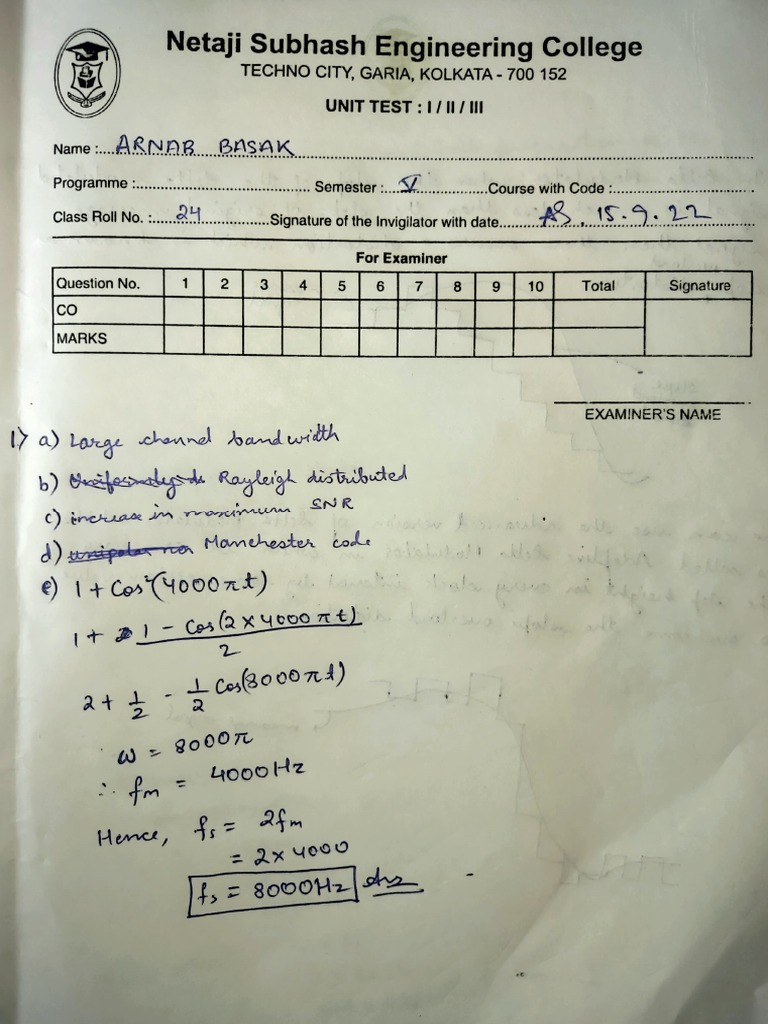 Netaji Subhash Engineering College
TECHNO CITY, GARIA, KOLKATA - 700 152
UNIT TEST : I / II / III
Name : ARNAB BASAK
Programme : Semester : V Course with Code :
Class Roll No. : 24 Signature of the Invigilator with date 15.9.22
For Examiner
Question No. 1 2 3 4 5 6 7 8 9 10 Total Signature
CO
MARKS
EXAMINER'S NAME
1) a) Large channel bandwidth
b) Rayleigh distributed
c) increase in maximum SNR
d) Manchester code
e) 1 + Cos²(4000πt)
1 + 1 - Cos(2 × 4000πt)
2
2 + 1/2 - 1/2 Cos(8000πt)
ω = 8000π
∴ fm = 4000Hz
Hence, fs = 2fm
= 2 × 4000
fs = 8000Hz Ans